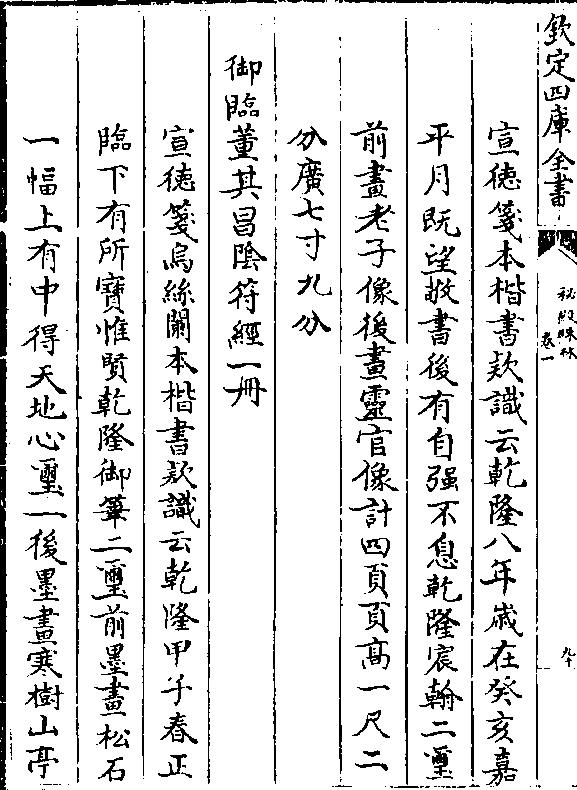 欽定四庫全書
秘殿珠林
卷一
九十
宣徳箋本楷書欵識云乾隆八年歳在癸亥嘉
平月既望敬書後有自强不息乾隆宸翰二璽
前畫老子像後畫靈官像計四頁頁髙一尺二
分廣七寸九分
御臨董其昌陰符經一冊
宣徳箋烏絲闌本楷書欵識云乾隆甲子春正
臨下有所寶惟賢乾隆御筆二璽前墨畫松石
一幅上有中得天地心璽一後墨畫寒樹山亭